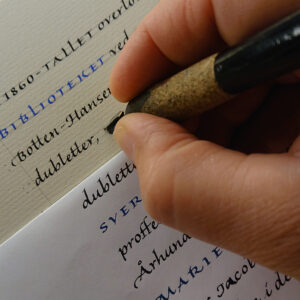 1860-TALLET overlo
BIBLIOTEKET ved
Botten-Hansen
dubletter,
dublette
SVER
proffe
Århund
MARIE
Jacob
i de